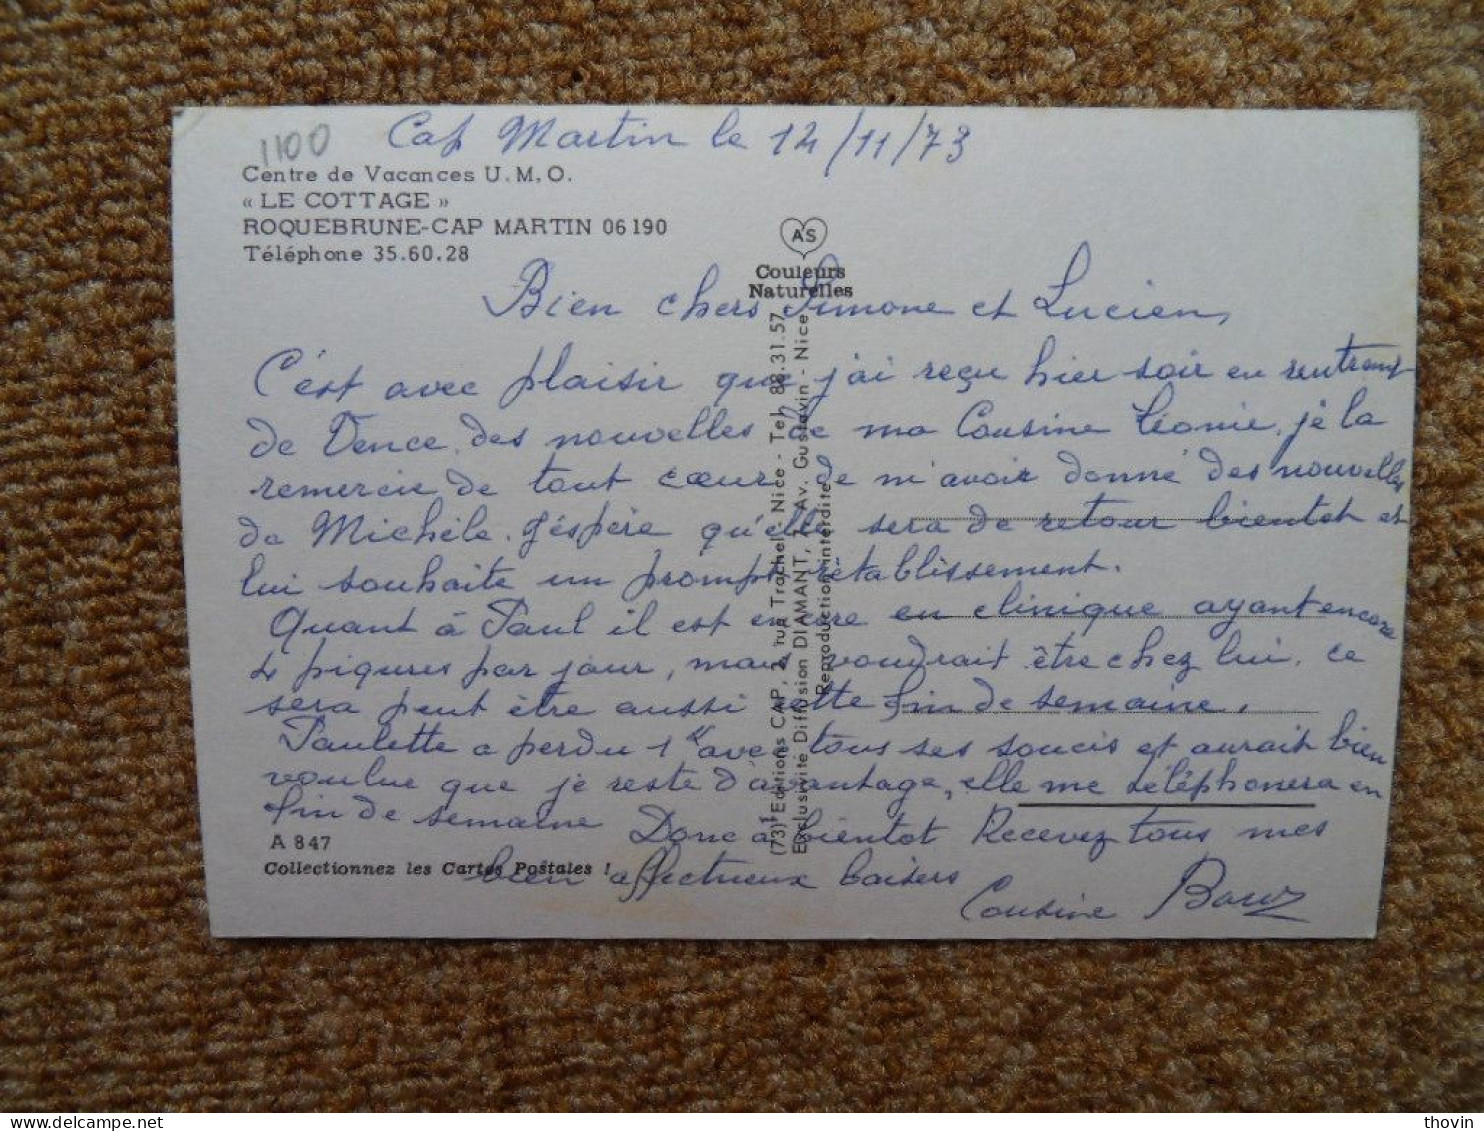 1100
Cap Martin le 12/11/73
Centre de Vacances U.M.O.
« LE COTTAGE »
ROQUEBRUNE-CAP MARTIN 06190
Téléphone 35.60.28
AS
Couleurs
Naturelles
Bien chers Simone et Lucien,
C'est avec plaisir que j'ai reçu hier soir en rentrant
de Vence, des nouvelles de ma Cousine Léonie, je la
remercie de tout cœur de m'avoir donné des nouvelles
de Michèle. J'éspère qu'elle sera de retour bientot et
lui souhaite un prompt rétablissement.
Quant à Paul il est encore en clinique ayant encore
4 piqures par jour, mais voudrait être chez lui, ce
sera peut être aussi cette fin de semaine.
Paulette a perdu 1 avec tous ses soucis et aurait bien
voulue que je reste d'avantage, elle me téléphonera en
fin de semaine Donc à bientot Recevez tous mes
bien affectueux baisers
Cousine
(73) Editions CAP, 2, rue Trachel - Nice - Tel. 88.31.57
Exclusivité Diffusion DIAMANT, 7, Av. Gustavin - Nice
Reproduction interdite
A 847
Collectionnez les Cartes Postales !
thovin
delcampe.net